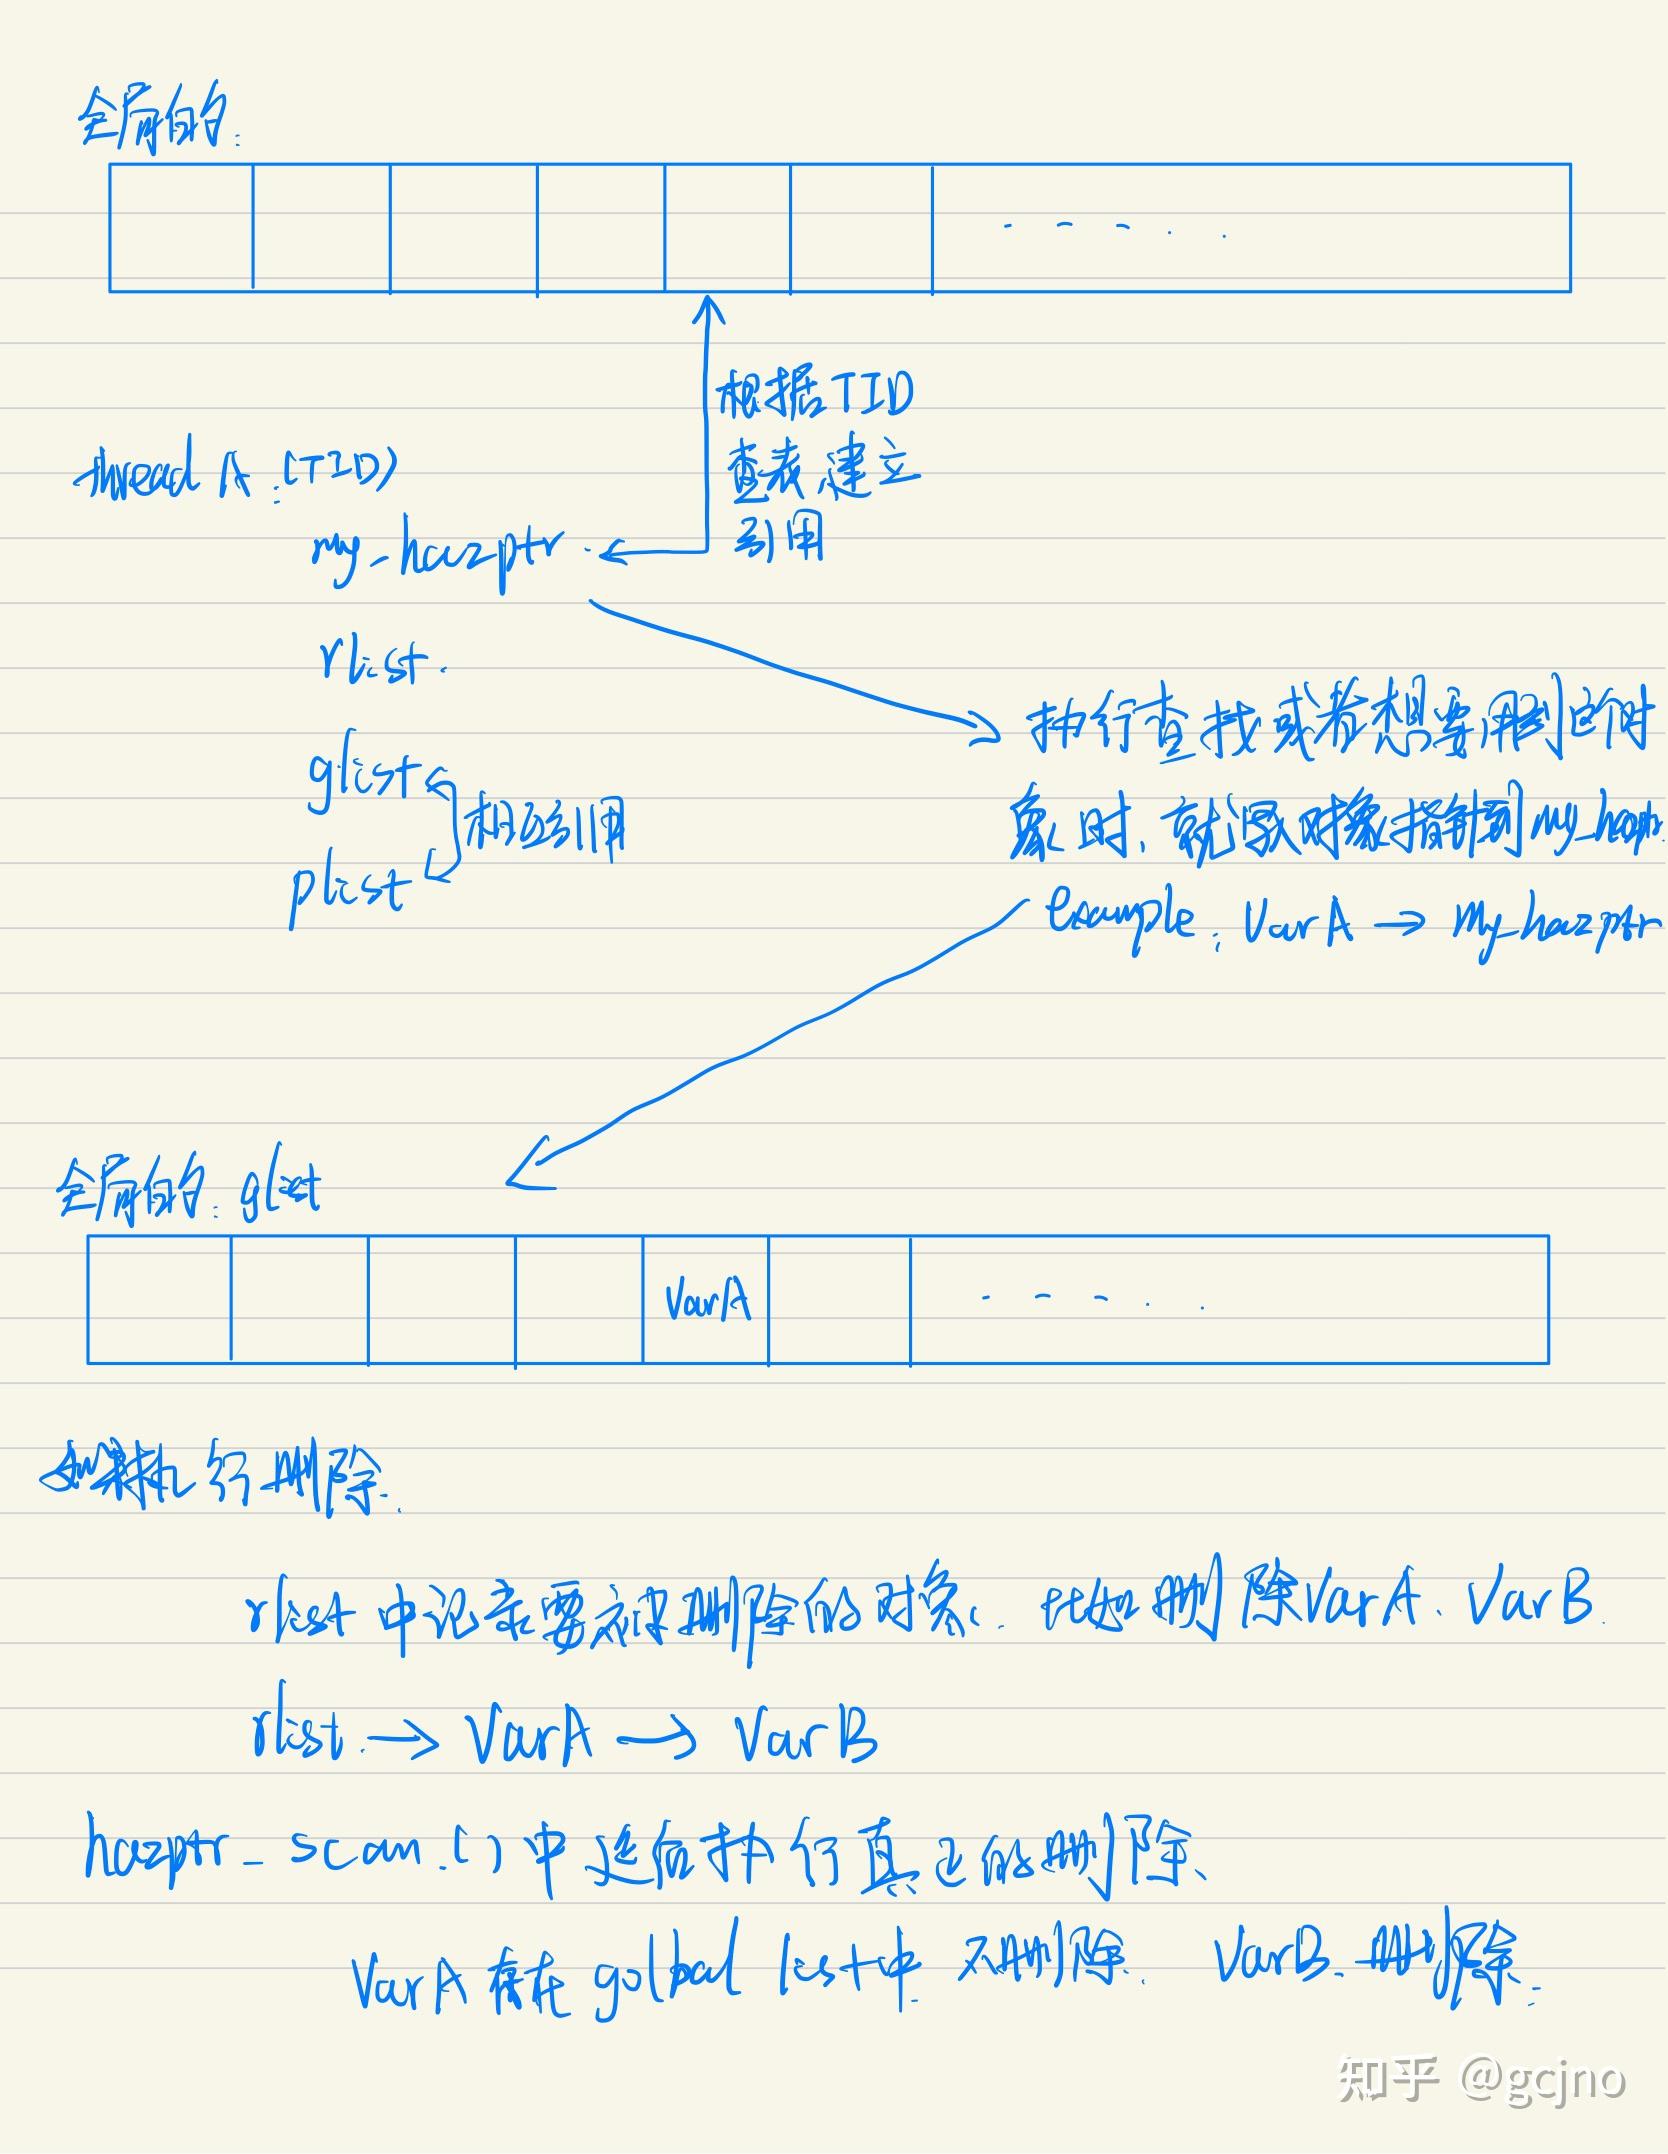 全局的:
根据TID
thread A:(TID)
查表,建立
引用
my_hazptr
rlist.
执行查找或者想要用到的对
glist
象时、就读取对象指针到my_hazptr
相互引用
plist
example: VarA → my_hazptr
全局的: glist
VarA
如果执行删除.
rlist 中记录要被删除的对象、比如删除VarA、VarB.
rlist → VarA → VarB
hazptr_scan()中延后执行真正的删除、
VarA 存在 golbal list中 不删除. VarB 删除.
知乎 @gcjno